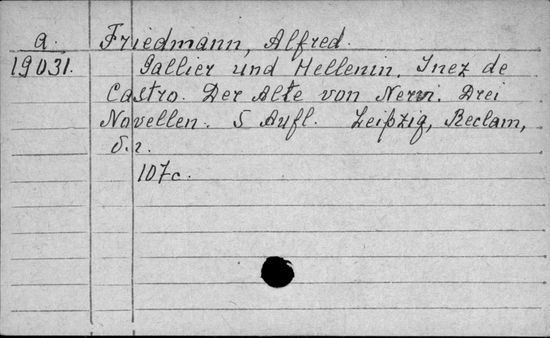 a. Friedmann, Alfred.
19031. Gallier und Hellenin. Inez de
Castro. Der Alte von Nervi. Drei
Novellen. 5 Aufl. Leipzig, Reclam,
107c.